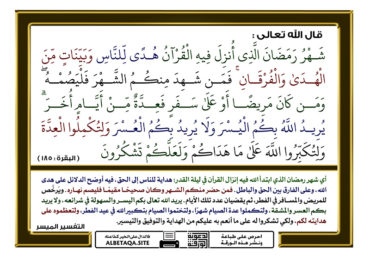 قال الله تعالى :
شَهْرُ رَمَضَانَ الَّذِي أُنزِلَ فِيهِ الْقُرْآنُ هُدًى لِّلنَّاسِ وَبَيِّنَاتٍ مِّنَ
الْهُدَىٰ وَالْفُرْقَانِ ۚ فَمَن شَهِدَ مِنكُمُ الشَّهْرَ فَلْيَصُمْهُ ۖ
وَمَن كَانَ مَرِيضًا أَوْ عَلَىٰ سَفَرٍ فَعِدَّةٌ مِّنْ أَيَّامٍ أُخَرَ ۗ
يُرِيدُ اللَّهُ بِكُمُ الْيُسْرَ وَلَا يُرِيدُ بِكُمُ الْعُسْرَ وَلِتُكْمِلُوا الْعِدَّةَ
وَلِتُكَبِّرُوا اللَّهَ عَلَىٰ مَا هَدَاكُمْ وَلَعَلَّكُمْ تَشْكُرُونَ ( البقرة : ١٨٥ )
أي شهر رمضان الذي ابتدأ الله فيه إنزال القرآن في ليلة القدر؛ هداية للناس إلى الحق، فيه أوضح الدلائل على هدى
الله، وعلى الفارق بين الحق والباطل. فمن حضر منكم الشهر وكان صحيحًا مقيمًا فليصم نهاره. ويُرخَّص
للمريض والمسافر في الفطر، ثم يقضيان عدد تلك الأيام. يريد الله تعالى بكم اليسر والسهولة في شرائعه، ولا يريد
بكم العسر والمشقة، ولتكملوا عدة الصيام شهرًا، ولتختموا الصيام بتكبير الله في عيد الفطر، ولتعظموه على
هدايته لكم، ولكي تشكروا له على ما أنعم به عليكم من الهداية والتوفيق والتيسير.
التفسير الميسر
احرص على طباعة
ونشر هذه الورقة
ALBETAQA.SITE